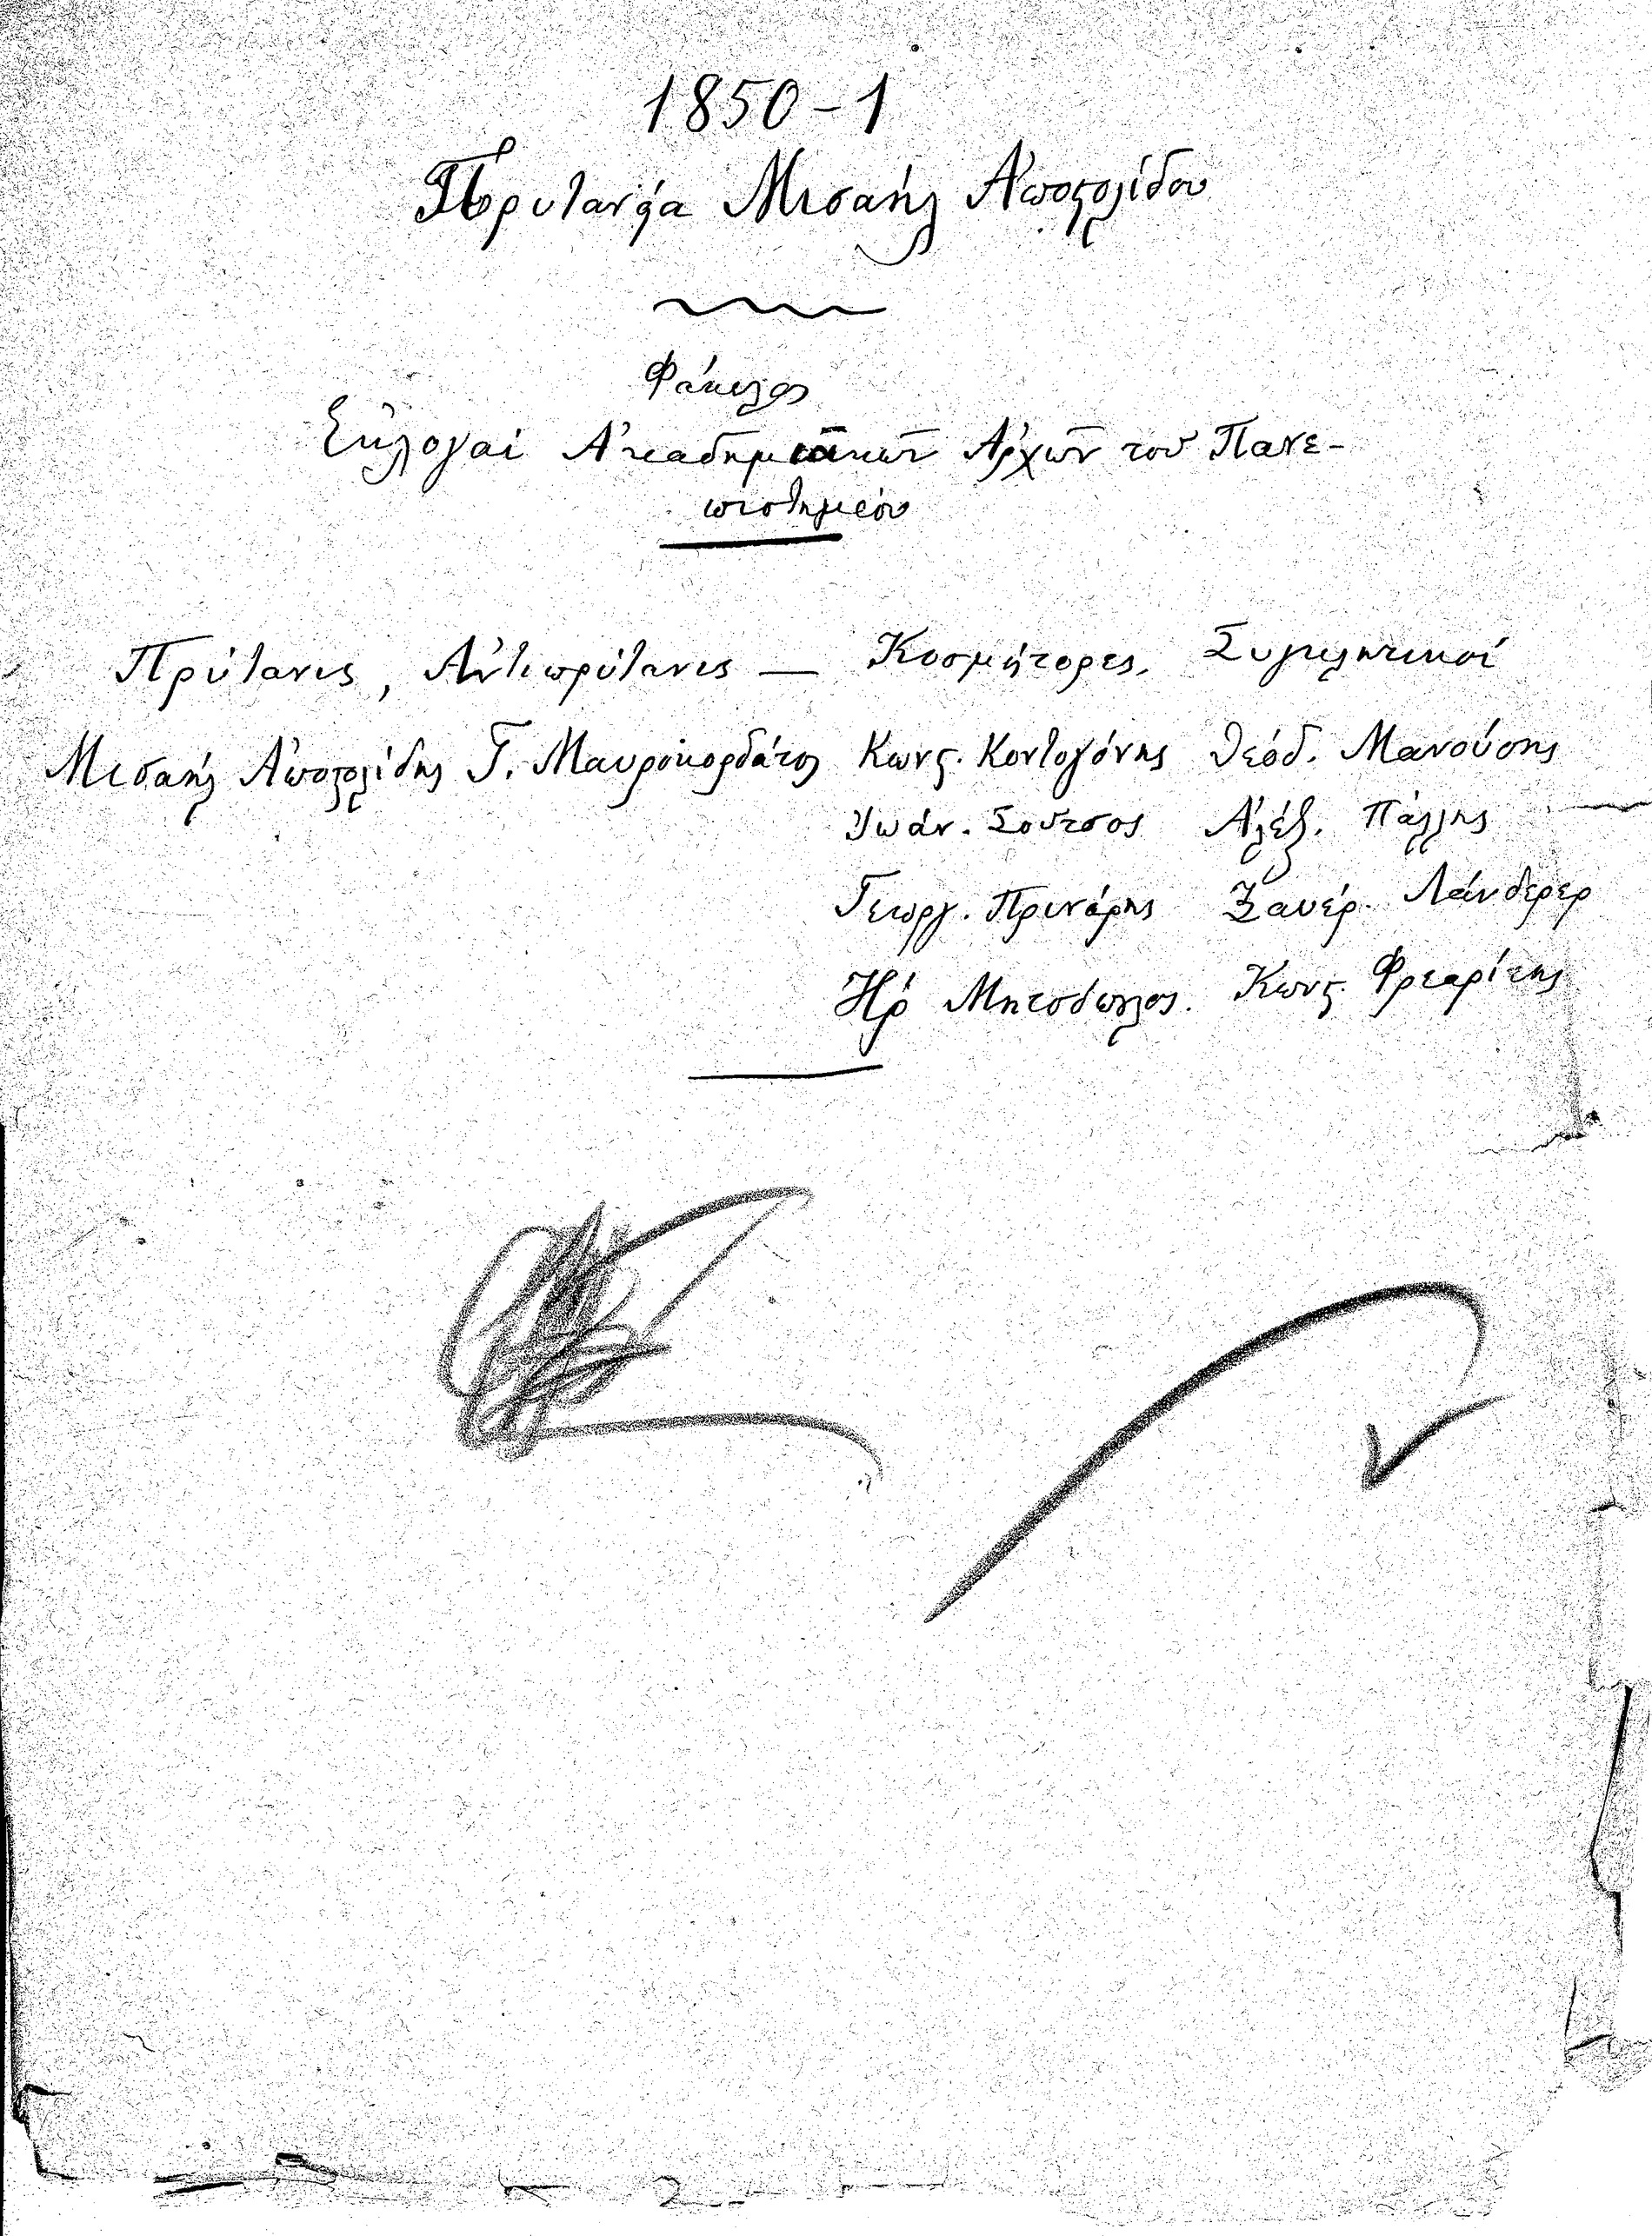 1850-1
Πρυτανεία Μισαήλ Ἀποστολίδου
Φάκελος
Ἐκλογαί Ἀκαδημαϊκῶν Ἀρχῶν τοῦ Πανε-
πιστημίου
Πρύτανις, Ἀντιπρύτανις — Κοσμήτορες, Συγκλητικοί
Μισαήλ Ἀποστολίδης Γ. Μαυροκορδάτος Κωνς. Κοντογόνης Θεόδ. Μανούσης
Ἰωάν. Σοῦτσος Ἀλέξ. Πάλλης
Γεωργ. Πρινάρης Ξαυέρ. Λάνδερερ
Ἡρ Μητσόπουλος. Κωνς. Φρεαρίτης